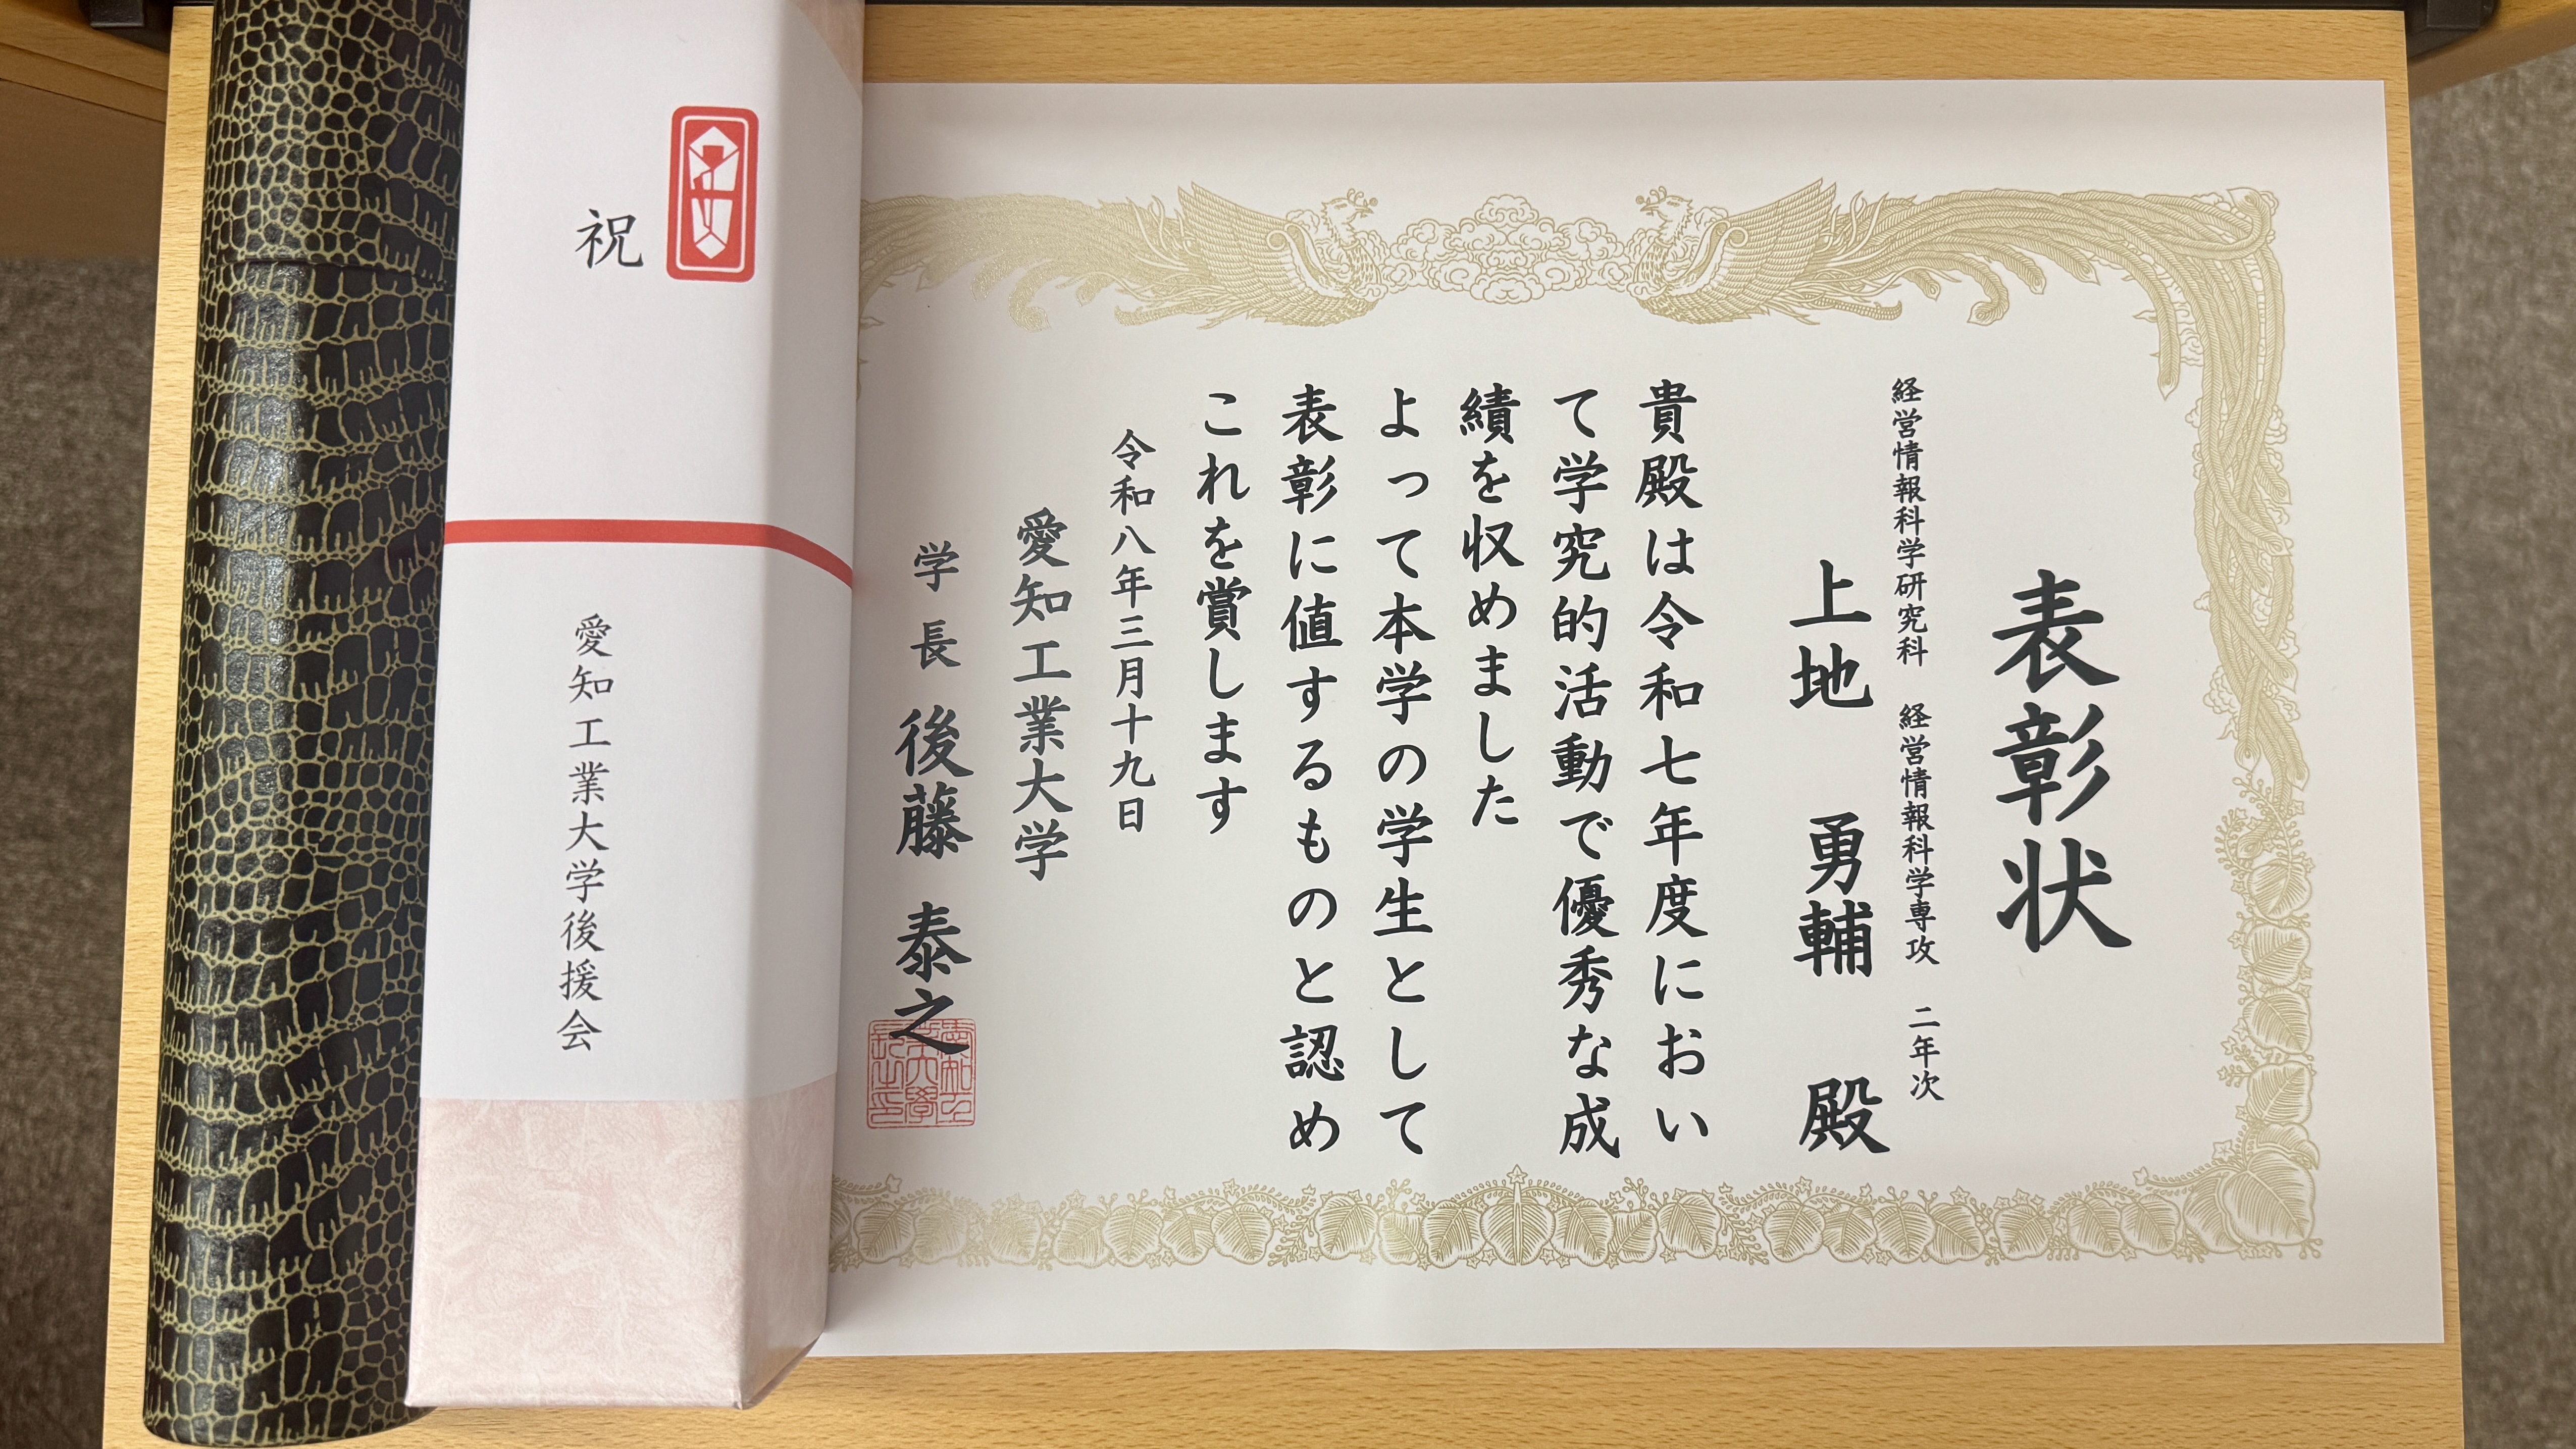 表彰状
経営情報科学研究科 経営情報科学専攻 二年次
上地 勇輔 殿
貴殿は令和七年度におい
て学究的活動で優秀な成
績を収めました
よって本学の学生として
表彰に値するものと認め
これを賞します
令和八年三月十九日
愛知工業大学
学長 後藤 泰之
祝
愛知工業大学後援会